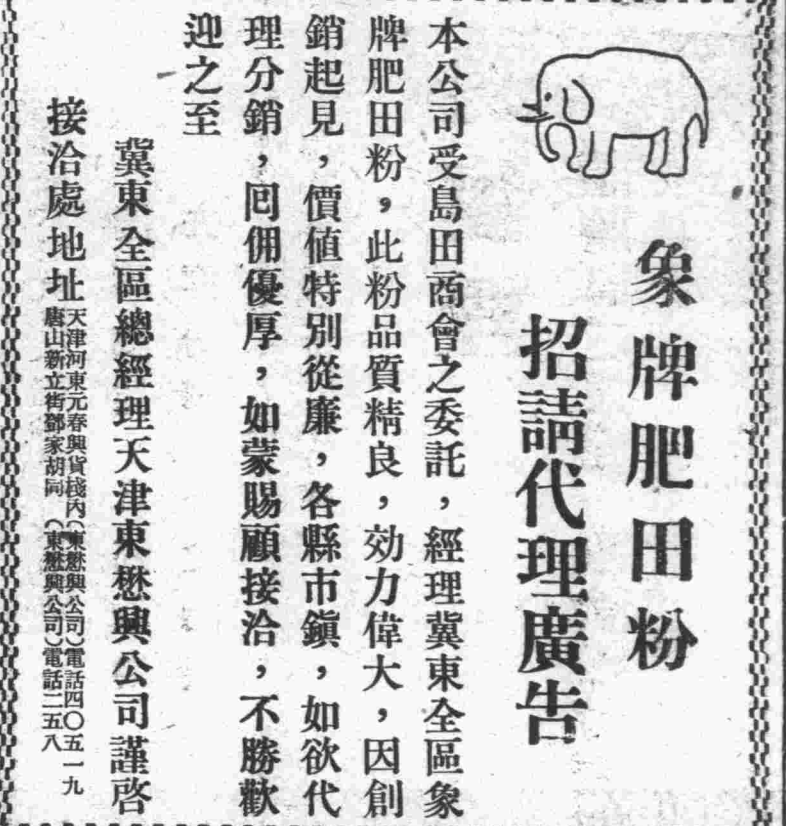 象牌肥田粉
招請代理廣告
本公司受島田商會之委託，經理冀東全區象
牌肥田粉，此粉品質精良，効力偉大，因創
銷起見，價值特別從廉，各縣市鎮，如欲代
理分銷，囘佣優厚，如蒙賜顧接洽，不勝歡
迎之至
冀東全區總經理天津東懋興公司謹啓
接洽處地址
天津河東元春興貨棧內（東懋興公司）電話四〇五一九
唐山新立街鄧家胡同（東懋興公司）電話二五八